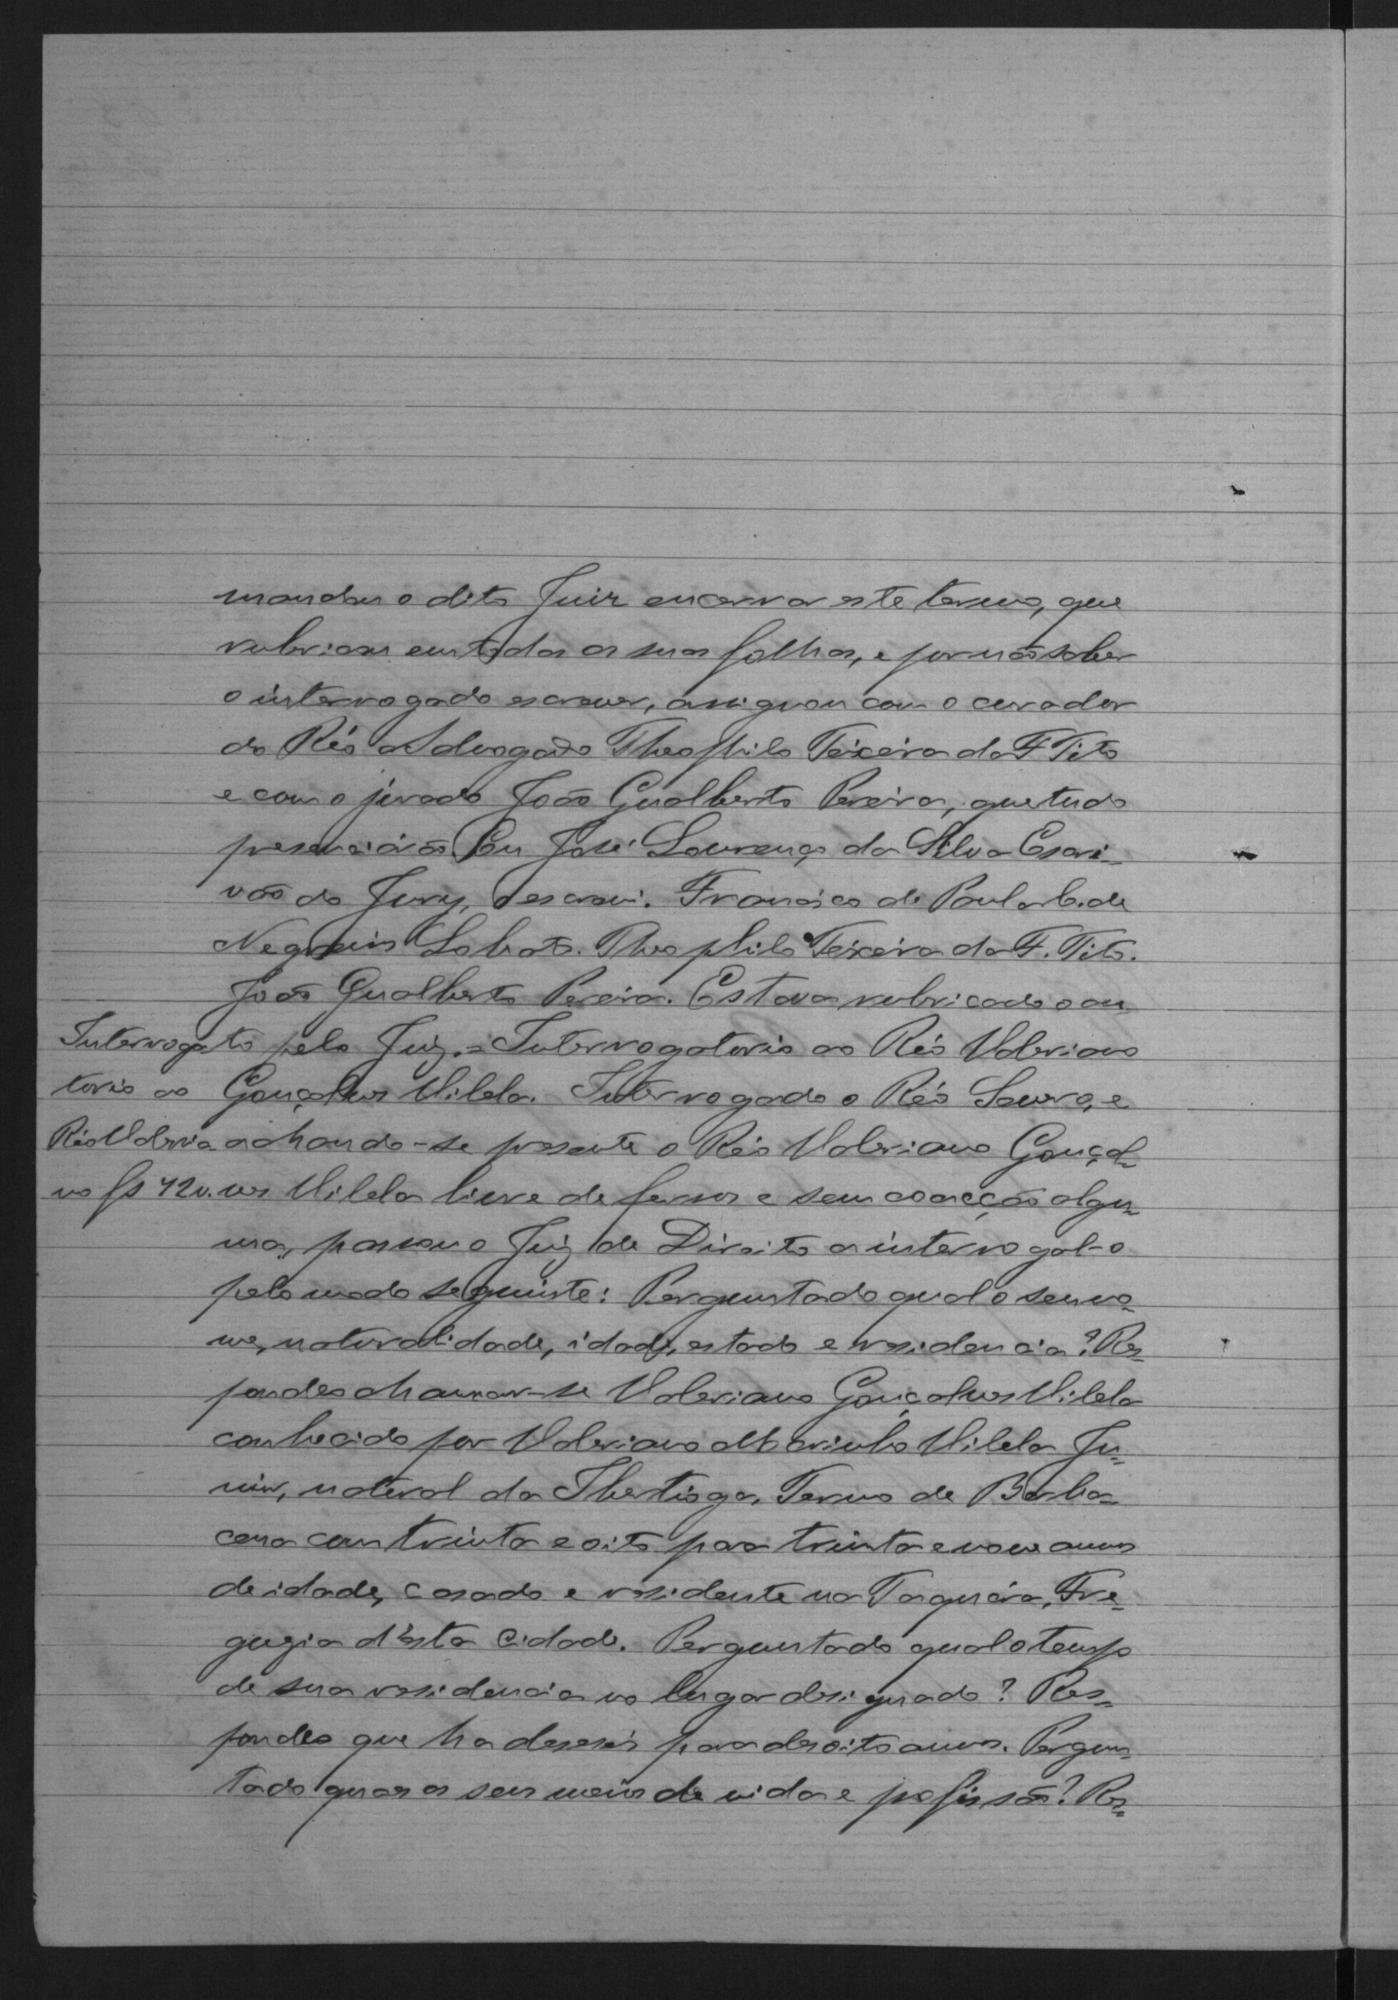 mandou o dito Juiz encerrar este termo, que
rubricou em todas as suas folhas, e por não saber
o interrogado escrever, assignou com o curador
do Réo o Advogado Theophilo Teixeira da F. Tito
e com o jurado João Gualberto Pereira, que tudo
presenciárão. Eu José Lourenço da Silva Escri-
vão do Jury, o escrevi. Francisco de Paula C. de
Negreiros Lobato. Theophilo Teixeira da F. Tito.
João Gualberto Pereira. Estava rubricado o au
to pelo Juiz.= Interrogatorio ao Réo Valeriano
Gonçalves Vilela. Interrogado o Réo Severo, e
achando-se presente o Réo Valeriano Gonçal=
ves Vilela livre de ferros e sem coacção algu=
ma, passou o Juiz de Direito a interrogal-o
pelo modo seguinte: Perguntado qual o seu no=
me, naturalidade, idade, estado e residencia? Res=
pondeo chamar-se Valeriano Gonçalves Vilela
conhecido por Valeriano Marinho Vilela Ju=
nior, natural da Ibertioga, Termo de Barba=
cena com trinta e oito para trinta e nove annos
de idade, casado e residente na Taquára, Fre=
guezia d'esta Cidade. Perguntado qual o tempo
de sua residencia no lugar designado? Res=
pondeo que ha deseseis para desoito annos. Pergun
tado quaes os seus meios de vida e profissão? Res=
Interroga
torio ao
Réo Valeria
no fs 42v.